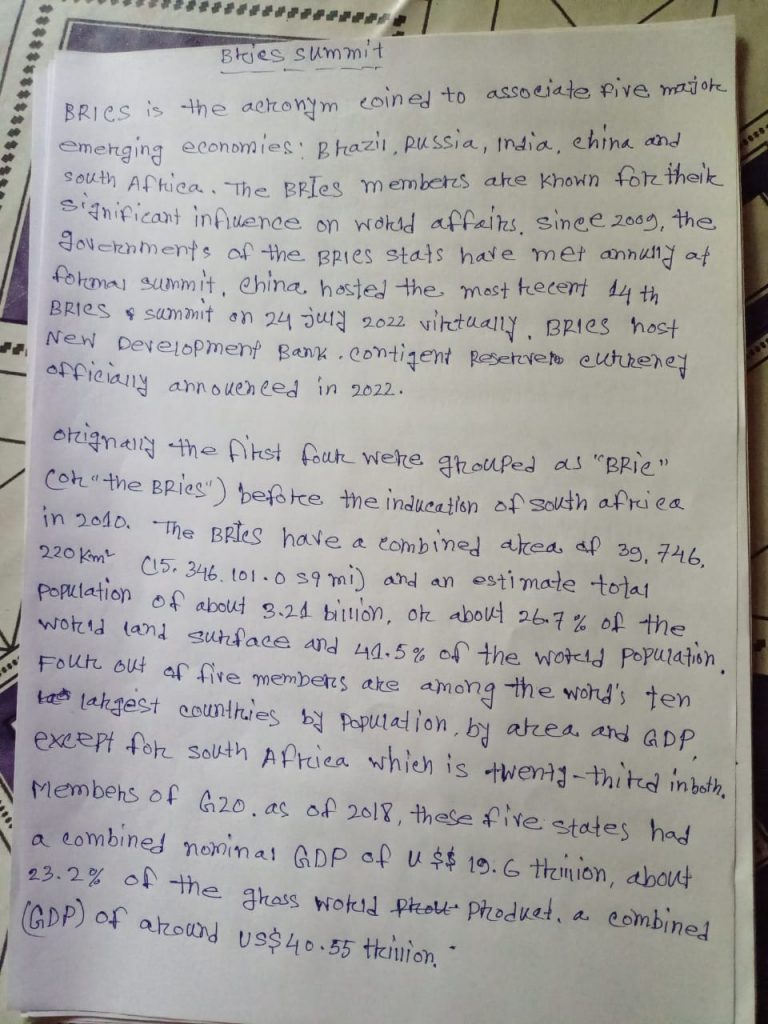 Brics summit
BRICS is the acronym coined to associate five major
emerging economies: Brazil, Russia, India, China and
South Africa. The BRIcs members are known for their
significant influence on world affairs. Since 2009, the
governments of the BRICS stats have met annully at
formal summit. China hosted the most recent 14 th
BRICS summit on 24 july 2022 virtually. BRICS host
New Development Bank. contigent Reserver currency
officially annouenced in 2022.
orignally the first four were grouped as "BRIC"
(or "the BRICS") before the inducation of south africa
in 2010. The BRIcs have a combined area of 39,746,
220 Km² (15.346.101.0 s9 mi) and an estimate total
population of about 3.21 billion, or about 26.7% of the
world land surface and 41.5% of the world population.
Four out of five members are among the world's ten
largest countries by population, by area and GDP,
except for South Africa which is twenty-third in both.
Members of G20. as of 2018, these five states had
a combined nominal GDP of U $$ 19.6 trillion, about
23.2% of the grass world product. a combined
(GDP) of around US$40.55 trillion.